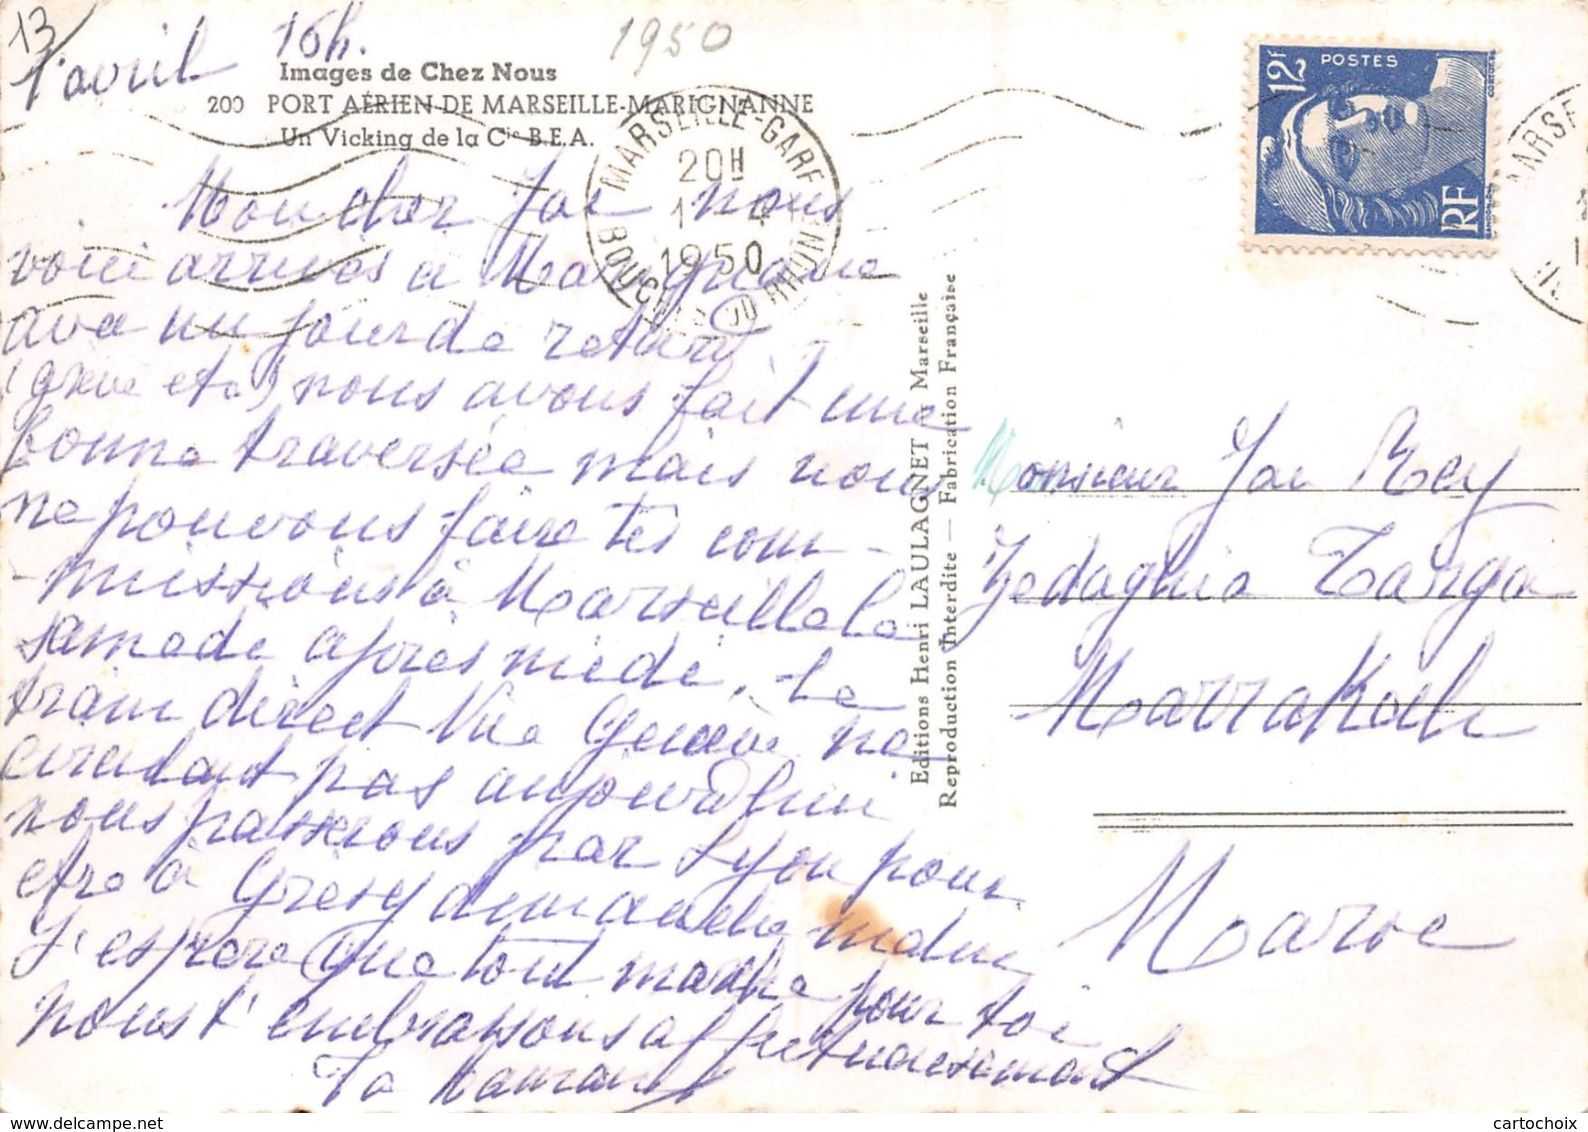 13
1er avril 16h. 1950
Images de Chez Nous
200 PORT AÉRIEN DE MARSEILLE-MARIGNANNE
Un Vicking de la Cie B.E.A.
MARSEILLE-GARE
20H
1 - 4
1950
BOUCHES DU RHONE
12F POSTES
RF
Mon cher Jac nous
voici arrivés à Marignane
avec un jour de retard
(grève etc) nous avons fait une
bonne traversée mais nous
ne pouvons faire tes com-
-missions à Marseille le
samedi après midi. Le
train direct Via Genève ne
circulant pas aujourd'hui
nous passerons par Lyon pour
etre à Grésy dimanche
J'espère que tout marche pour toi
nous t'embrassons affectueusement
Ta Maman
Editions Henri LAULAGNET Marseille
Reproduction Interdite — Fabrication Française
Monsieur Jac Rey
Targa
Marrakech
Maroc
cartochoix